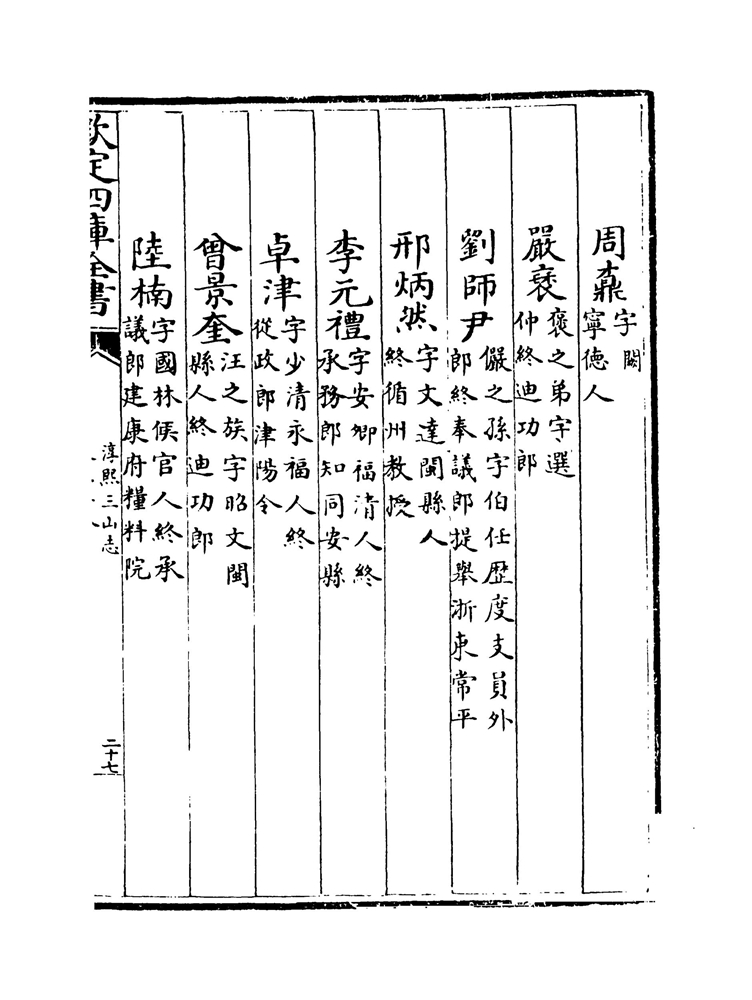 周鼒字闕
寧徳人
嚴
褒之弟字選
仲終迪功郎
劉師尹儼之孫字伯任歴度支員外
郎終奉議郎提舉浙東常平
邢炳然字文達閩縣人
終循州教授
李元禮字安卿福清人終
承務郎知同安縣
卓津字少清永福人終
從政郎津陽令
曾景奎汪之族字昭文閩
縣人終迪功郎
陸楠字國林侯官人終承
議郎建康府糧料院
欽定四庫全書
淳熙三山志
二十七